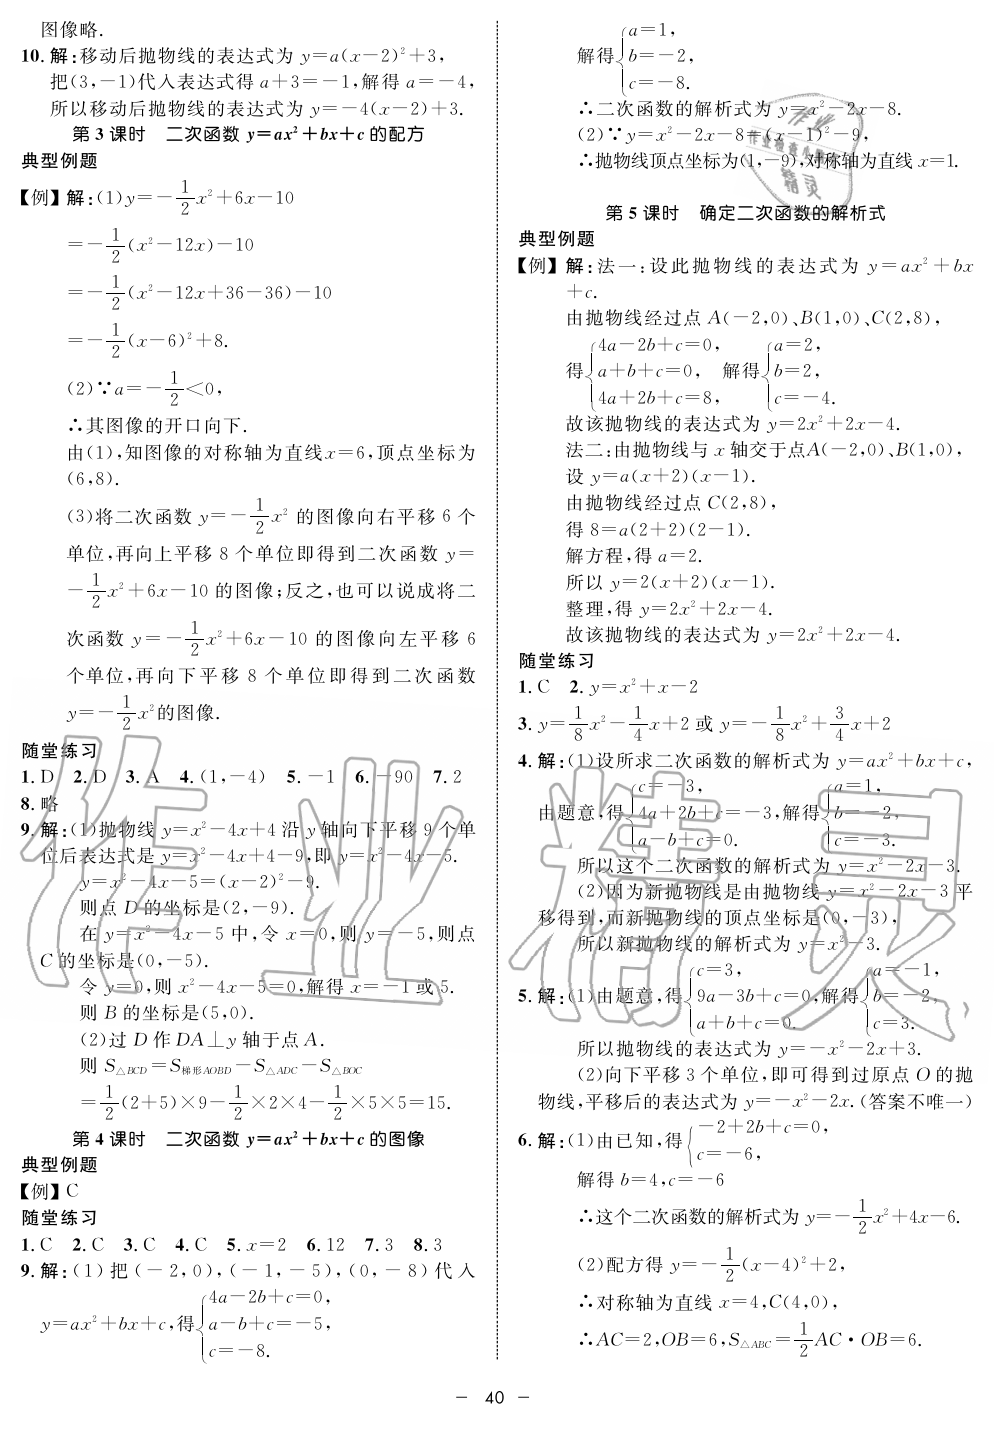 图像略.
10. 解:移动后抛物线的表达式为 y=a(x-2)²+3,
把(3,-1)代入表达式得 a+3=-1,解得 a=-4,
所以移动后抛物线的表达式为 y=-4(x-2)+3.
第 3 课时 二次函数 y=ax²+bx+c 的配方
典型例题
【例】解:(1)y=-1/2x²+6x-10
=-1/2(x²-12x)-10
=-1/2(x²-12x+36-36)-10
=-1/2(x-6)²+8.
(2)∵a=-1/2<0,
∴其图像的开口向下.
由(1),知图像的对称轴为直线x=6,顶点坐标为
(6,8).
(3)将二次函数 y=-1/2x² 的图像向右平移 6 个
单位,再向上平移 8 个单位即得到二次函数 y=
-1/2x²+6x-10 的图像;反之,也可以说成将二
次函数 y=-1/2x²+6x-10 的图像向左平移 6
个单位,再向下平移 8 个单位即得到二次函数
y=-1/2x²的图像.
随堂练习
1. D 2. D 3. A 4. (1,-4) 5. -1 6. -90 7. 2
8. 略
9. 解:(1)抛物线 y=x²-4x+4 沿 y 轴向下平移 9 个单
位后表达式是 y=x²-4x+4-9,即 y=x²-4x-5.
y=x²-4x-5=(x-2)²-9.
则点 D 的坐标是(2,-9).
在 y=x²-4x-5 中,令 x=0,则 y=-5,则点
C 的坐标是(0,-5).
令 y=0,则 x²-4x-5=0,解得 x=-1或 5.
则 B 的坐标是(5,0).
(2)过 D 作 DA⊥y 轴于点 A.
则 S△BCD=S梯形AOBD-S△ADC-S△BOC
=1/2(2+5)×9-1/2×2×4-1/2×5×5=15.
第 4 课时 二次函数 y=ax²+bx+c 的图像
典型例题
【例】C
随堂练习
1. C 2. C 3. C 4. C 5. x=2 6. 12 7. 3 8. 3
9. 解:(1) 把 (-2,0),(-1,-5),(0,-8) 代入
4a-2b+c=0,
y=ax²+bx+c,得 a-b+c=-5,
c=-8.
a=1,
解得 b=-2,
c=-8.
∴二次函数的解析式为 y=x²-2x-8.
(2)∵y=x²-2x-8=(x-1)²-9,
∴抛物线顶点坐标为(1,-9),对称轴为直线 x=1.
第 5 课时 确定二次函数的解析式
典型例题
【例】 解:法一:设此抛物线的表达式为 y=ax²+bx
+c.
由抛物线经过点 A(-2,0)、B(1,0)、C(2,8),
4a-2b+c=0, a=2,
得 a+b+c=0, 解得 b=2,
4a+2b+c=8, c=-4.
故该抛物线的表达式为 y=2x²+2x-4.
法二:由抛物线与 x 轴交于点A(-2,0)、B(1,0),
设 y=a(x+2)(x-1).
由抛物线经过点 C(2,8),
得 8=a(2+2)(2-1).
解方程,得 a=2.
所以 y=2(x+2)(x-1).
整理,得 y=2x²+2x-4.
故该抛物线的表达式为 y=2x²+2x-4.
随堂练习
1. C 2. y=x²+x-2
3. y=1/8x²-1/4x+2 或 y=-1/8x²+3/4x+2
4. 解:(1)设所求二次函数的解析式为 y=ax²+bx+c,
c=-3, a=1,
由题意,得 4a+2b+c=-3,解得 b=-2,
a-b+c=0. c=-3.
所以这个二次函数的解析式为 y=x²-2x-3.
(2)因为新抛物线是由抛物线 y=x²-2x-3 平
移得到,而新抛物线的顶点坐标是(0,-3),
所以新抛物线的解析式为 y=x²-3.
c=3, a=-1,
5. 解:(1)由题意,得 9a-3b+c=0,解得 b=-2,
a+b+c=0. c=3.
所以抛物线的表达式为 y=-x²-2x+3.
(2)向下平移 3 个单位,即可得到过原点 O 的抛
物线,平移后的表达式为 y=-x²-2x.(答案不唯一)
6. 解:(1)由已知,得 -2+2b+c=0,
c=-6,
解得 b=4,c=-6
∴这个二次函数的解析式为 y=-1/2x²+4x-6.
(2)配方得 y=-1/2(x-4)²+2,
∴对称轴为直线 x=4,C(4,0),
∴AC=2,OB=6,S△ABC=1/2AC·OB=6.
- 40 -
作业精灵
作业
作业检查小能手
精灵